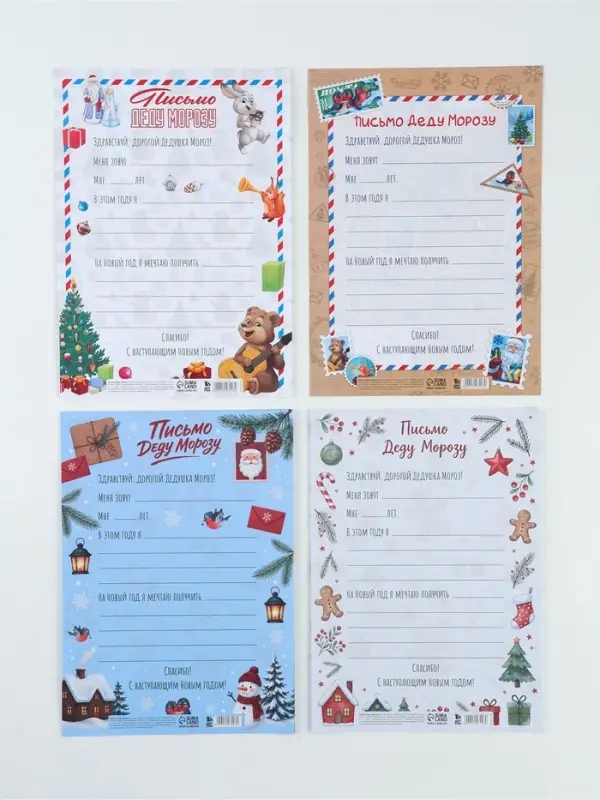 Письмо
Деду Морозу
Здравствуй, дорогой Дедушка Мороз!
Меня зовут
Мне лет
В этом году я
На Новый год я мечтаю получить
Спасибо!
С наступающим Новым годом!
SIMA
LAND
ПОЧТА
Письмо Деду Морозу
Здравствуй, дорогой Дедушка Мороз!
Меня зовут
Мне лет.
В этом году я
На Новый год я мечтаю получить
Спасибо!
С наступающим Новым годом!
SIMA
LAND
Письмо
Деду Морозу
Здравствуй, дорогой Дедушка Мороз!
Меня зовут
Мне лет.
В этом году я
На Новый год я мечтаю получить
Спасибо!
С наступающим Новым годом!
SIMA
LAND
Письмо
Деду Морозу
Здравствуй, дорогой Дедушка Мороз!
Меня зовут
Мне лет.
В этом году я
На Новый год я мечтаю получить
Спасибо!
С наступающим Новым годом!
SIMA
LAND